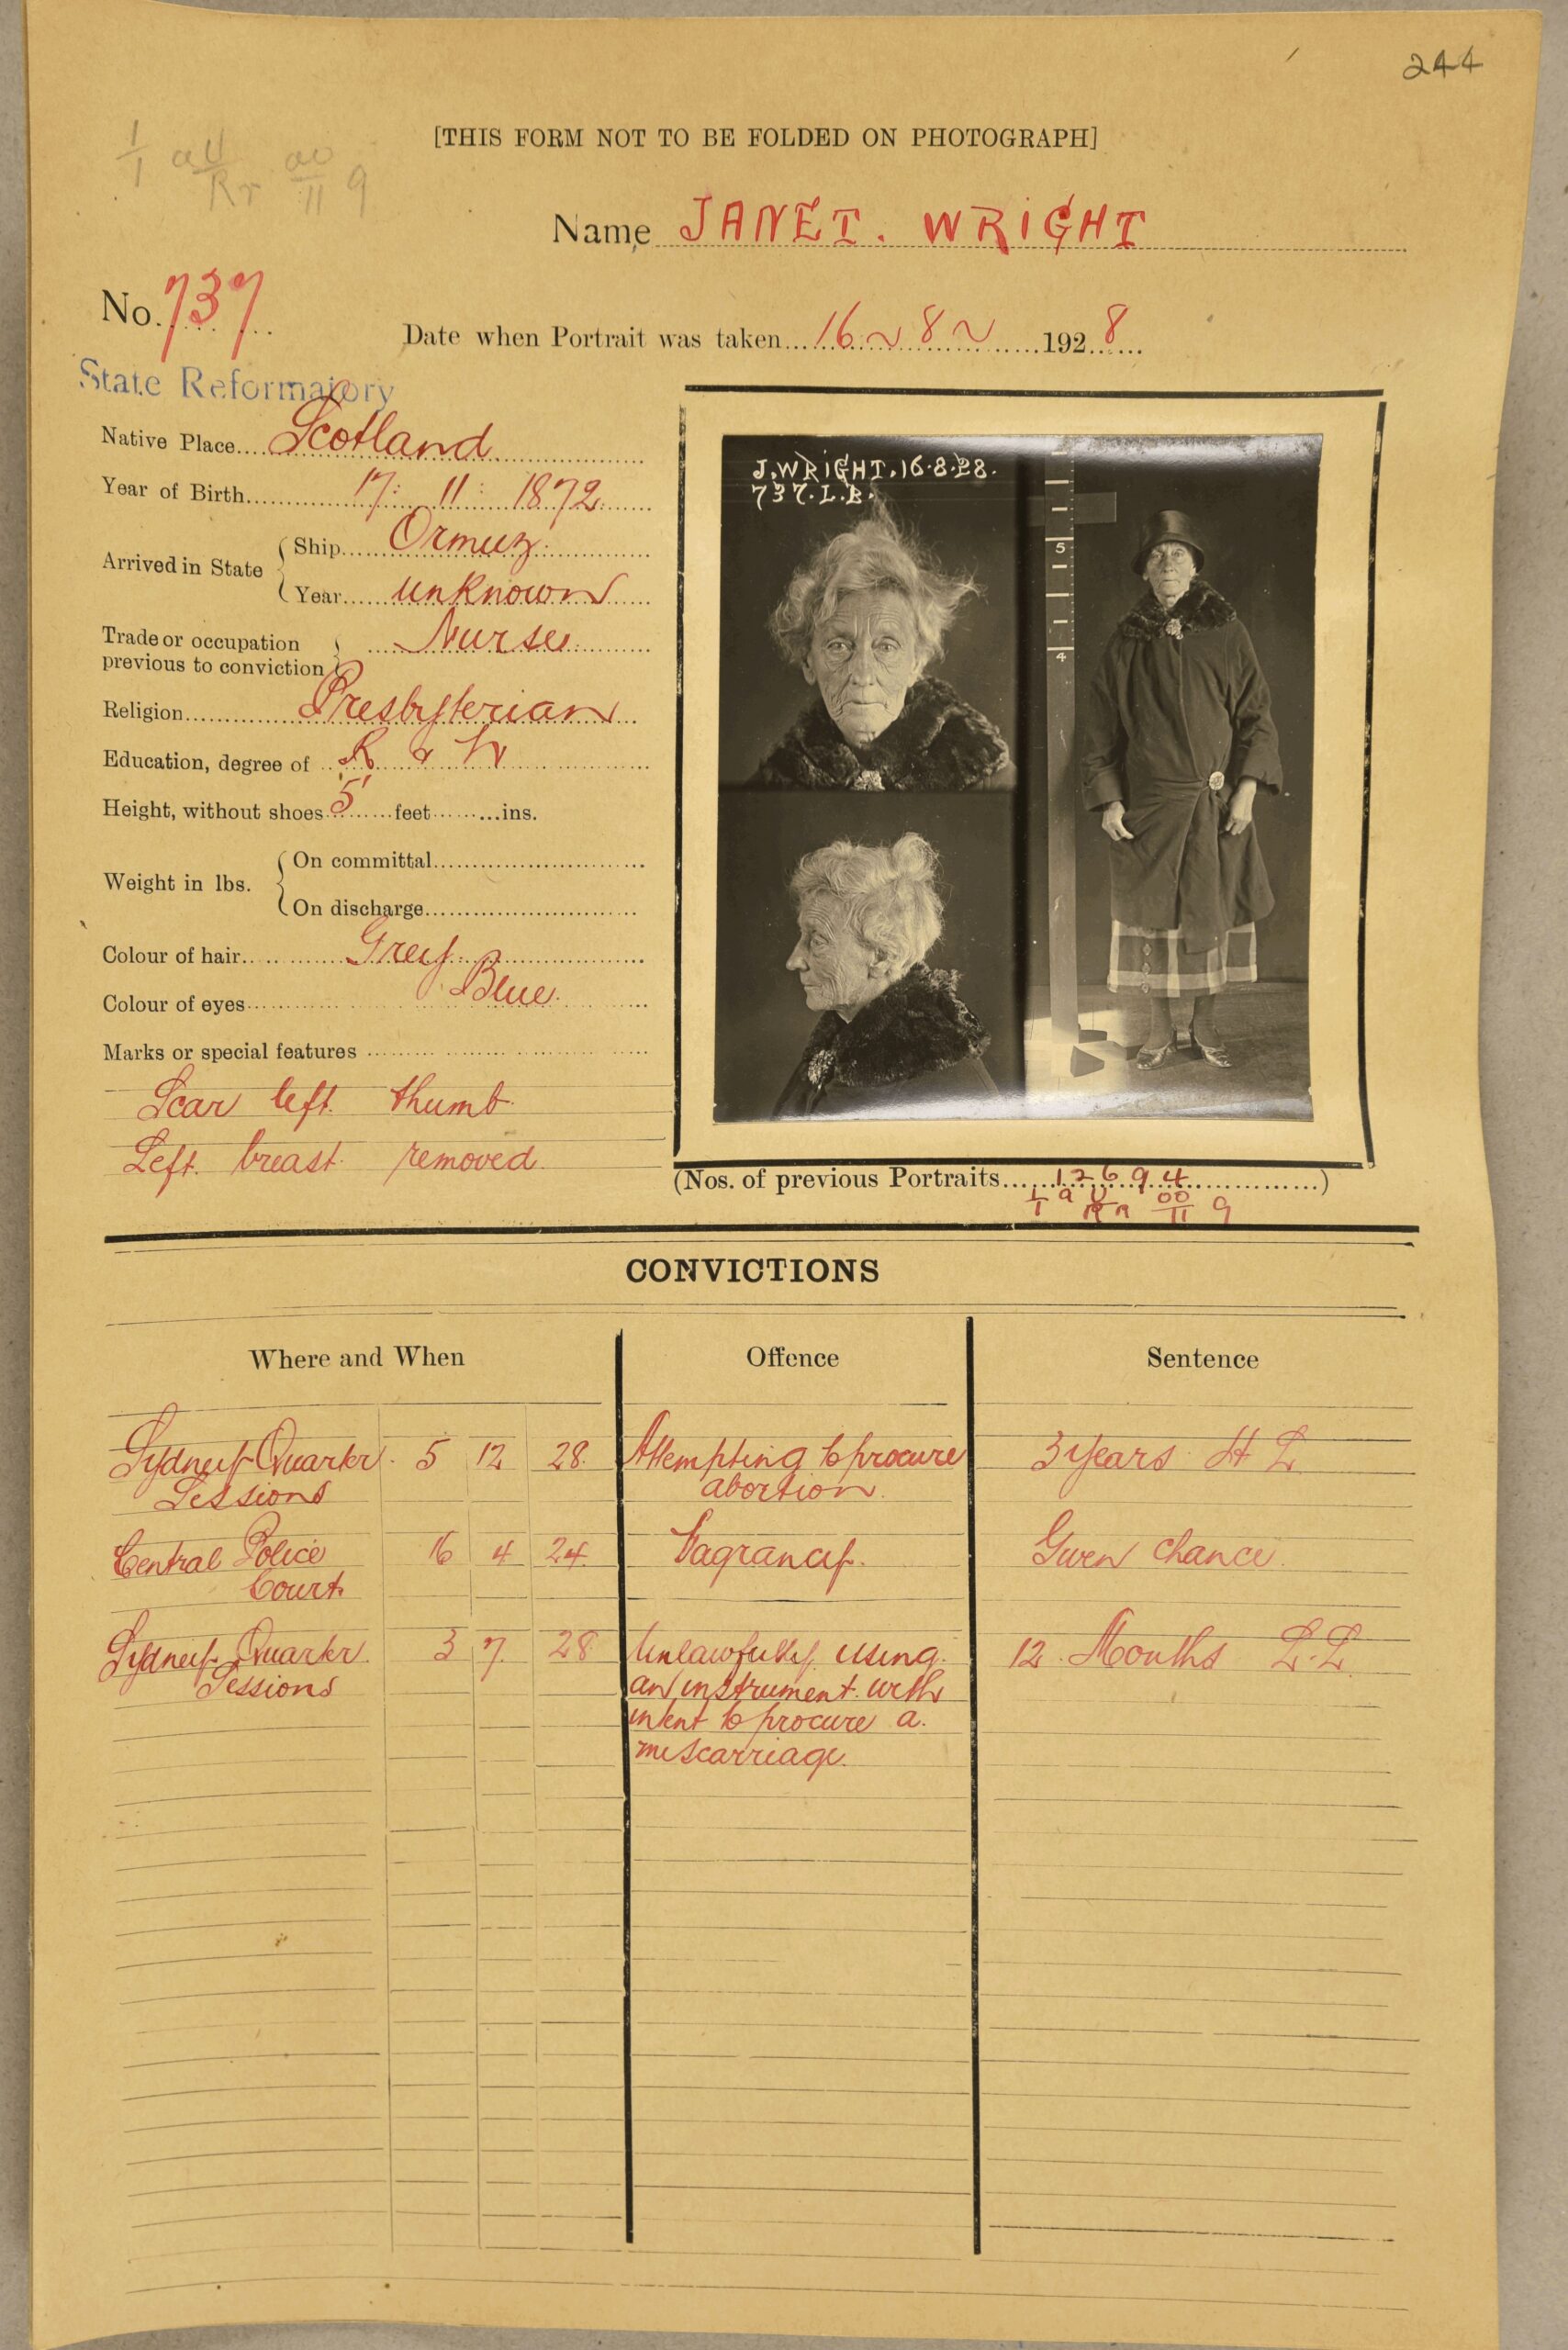 244
[THIS FORM NOT TO BE FOLDED ON PHOTOGRAPH]
Name JANET. WRIGHT
No. 737
Date when Portrait was taken 16~8~ 1928
State Reformatory
Native Place Scotland
Year of Birth 17: 11: 1872
Arrived in State
Ship Ormuz
Year unknown
Trade or occupation
previous to conviction
Nurse
Religion Presbyterian
Education, degree of R & W
Height, without shoes 5' feet ins.
Weight in lbs.
On committal
On discharge
Colour of hair Grey
Colour of eyes Blue
Marks or special features
Scar left thumb
Left breast removed
J.WRIGHT.16.8.28.
737.L.B.
5
4
(Nos. of previous Portraits 12694)
CONVICTIONS
Where and When Offence Sentence
Sydney Quarter 5 12 28. Attempting to procure 3 years H L
Sessions abortion.
Central Police 16 4 24 Vagrancy. Given chance.
Court.
Sydney Quarter 3 7 28 Unlawfully using 12 Months L.L
Sessions an instrument with
intent to procure a
miscarriage.